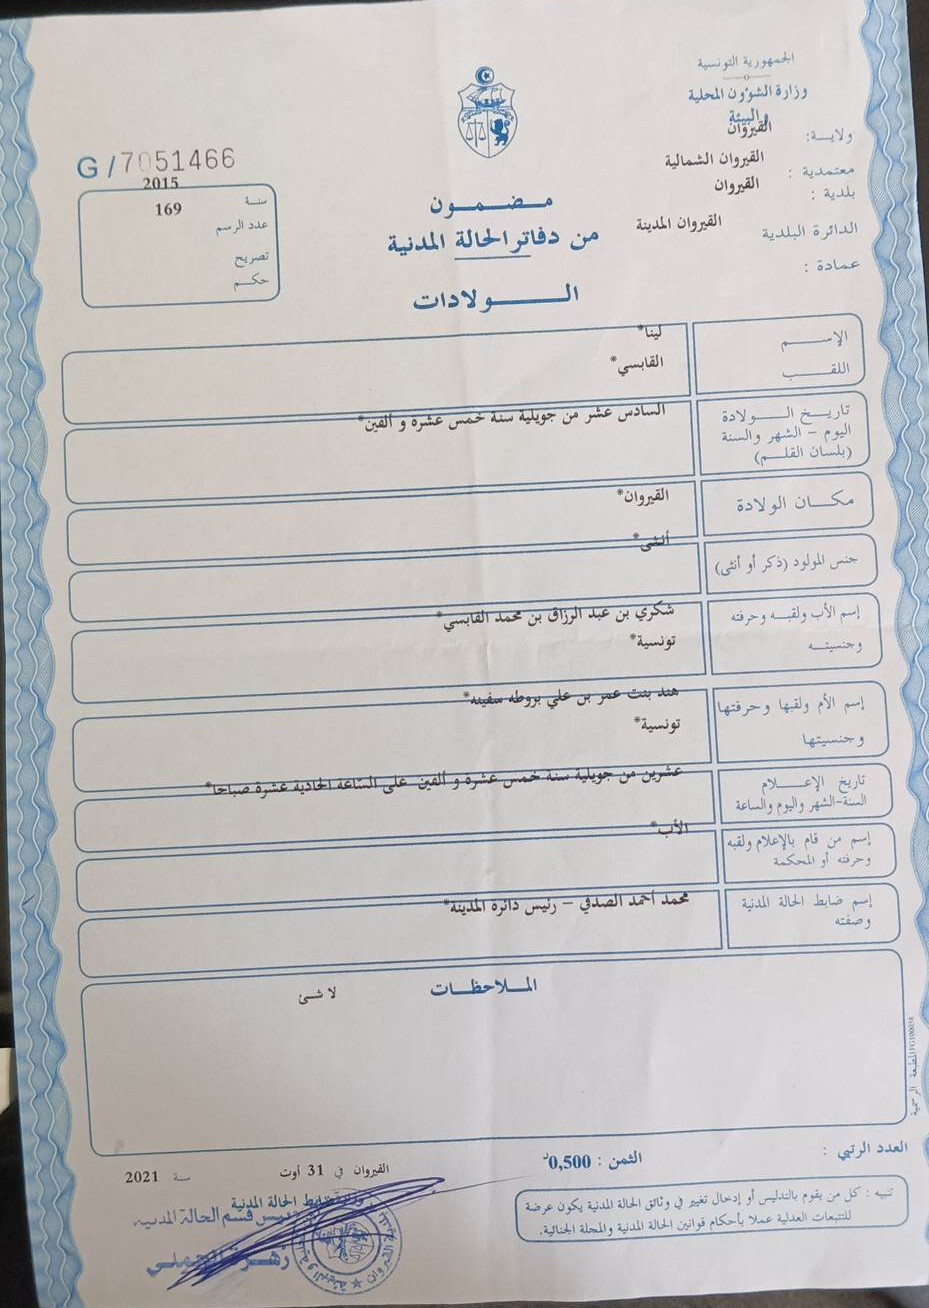 الجمهورية التونسية
وزارة الشؤون المحلية
والبيئة
ولاية: القيروان
معتمدية : القيروان الشمالية
بلدية : القيروان
الدائرة البلدية القيروان المدينة
عمادة :
G /7051466
سنة 2015
عدد الرسم 169
تصريح
حكم
مضمون
من دفاتر الحالة المدنية
الولادات
الإسم لينا*
اللقب القابسي*
تاريخ الولادة السادس عشر من جويلية سنة خمس عشرة و ألفين*
اليوم – الشهر والسنة
(بلسان القلم)
مكان الولادة القيروان*
جنس المولود (ذكر أو أنثى) أنثى*
إسم الأب ولقبه وحرفته شكري بن عبد الرزاق بن محمد القابسي*
وجنسيته تونسية*
إسم الأم ولقبها وحرفتها هند بنت عمر بن علي بروطه سفينه*
وجنسيتها تونسية*
تاريخ الإعلام عشرين من جويلية سنة خمس عشرة و ألفين على الساعة الحادية عشرة صباحا*
السنة-الشهر واليوم والساعة
إسم من قام بالإعلام ولقبه الأب*
وحرفته أو المحكمة
إسم ضابط الحالة المدنية محمد أحمد الصدفي – رئيس دائرة المدينة*
وصفته
الملاحظات
لا شئ
المطبعة الرسمية
العدد الرتبي :
الثمن : 0,500د
القيروان في 31 أوت سنة 2021
ضابط الحالة المدنية
رئيس قسم الحالة المدنية
تنبيه : كل من يقوم بالتدليس أو إدخال تغيير في وثائق الحالة المدنية يكون عرضة
للتتبعات العدلية عملا بأحكام قوانين الحالة المدنية والمجلة الجنائية.